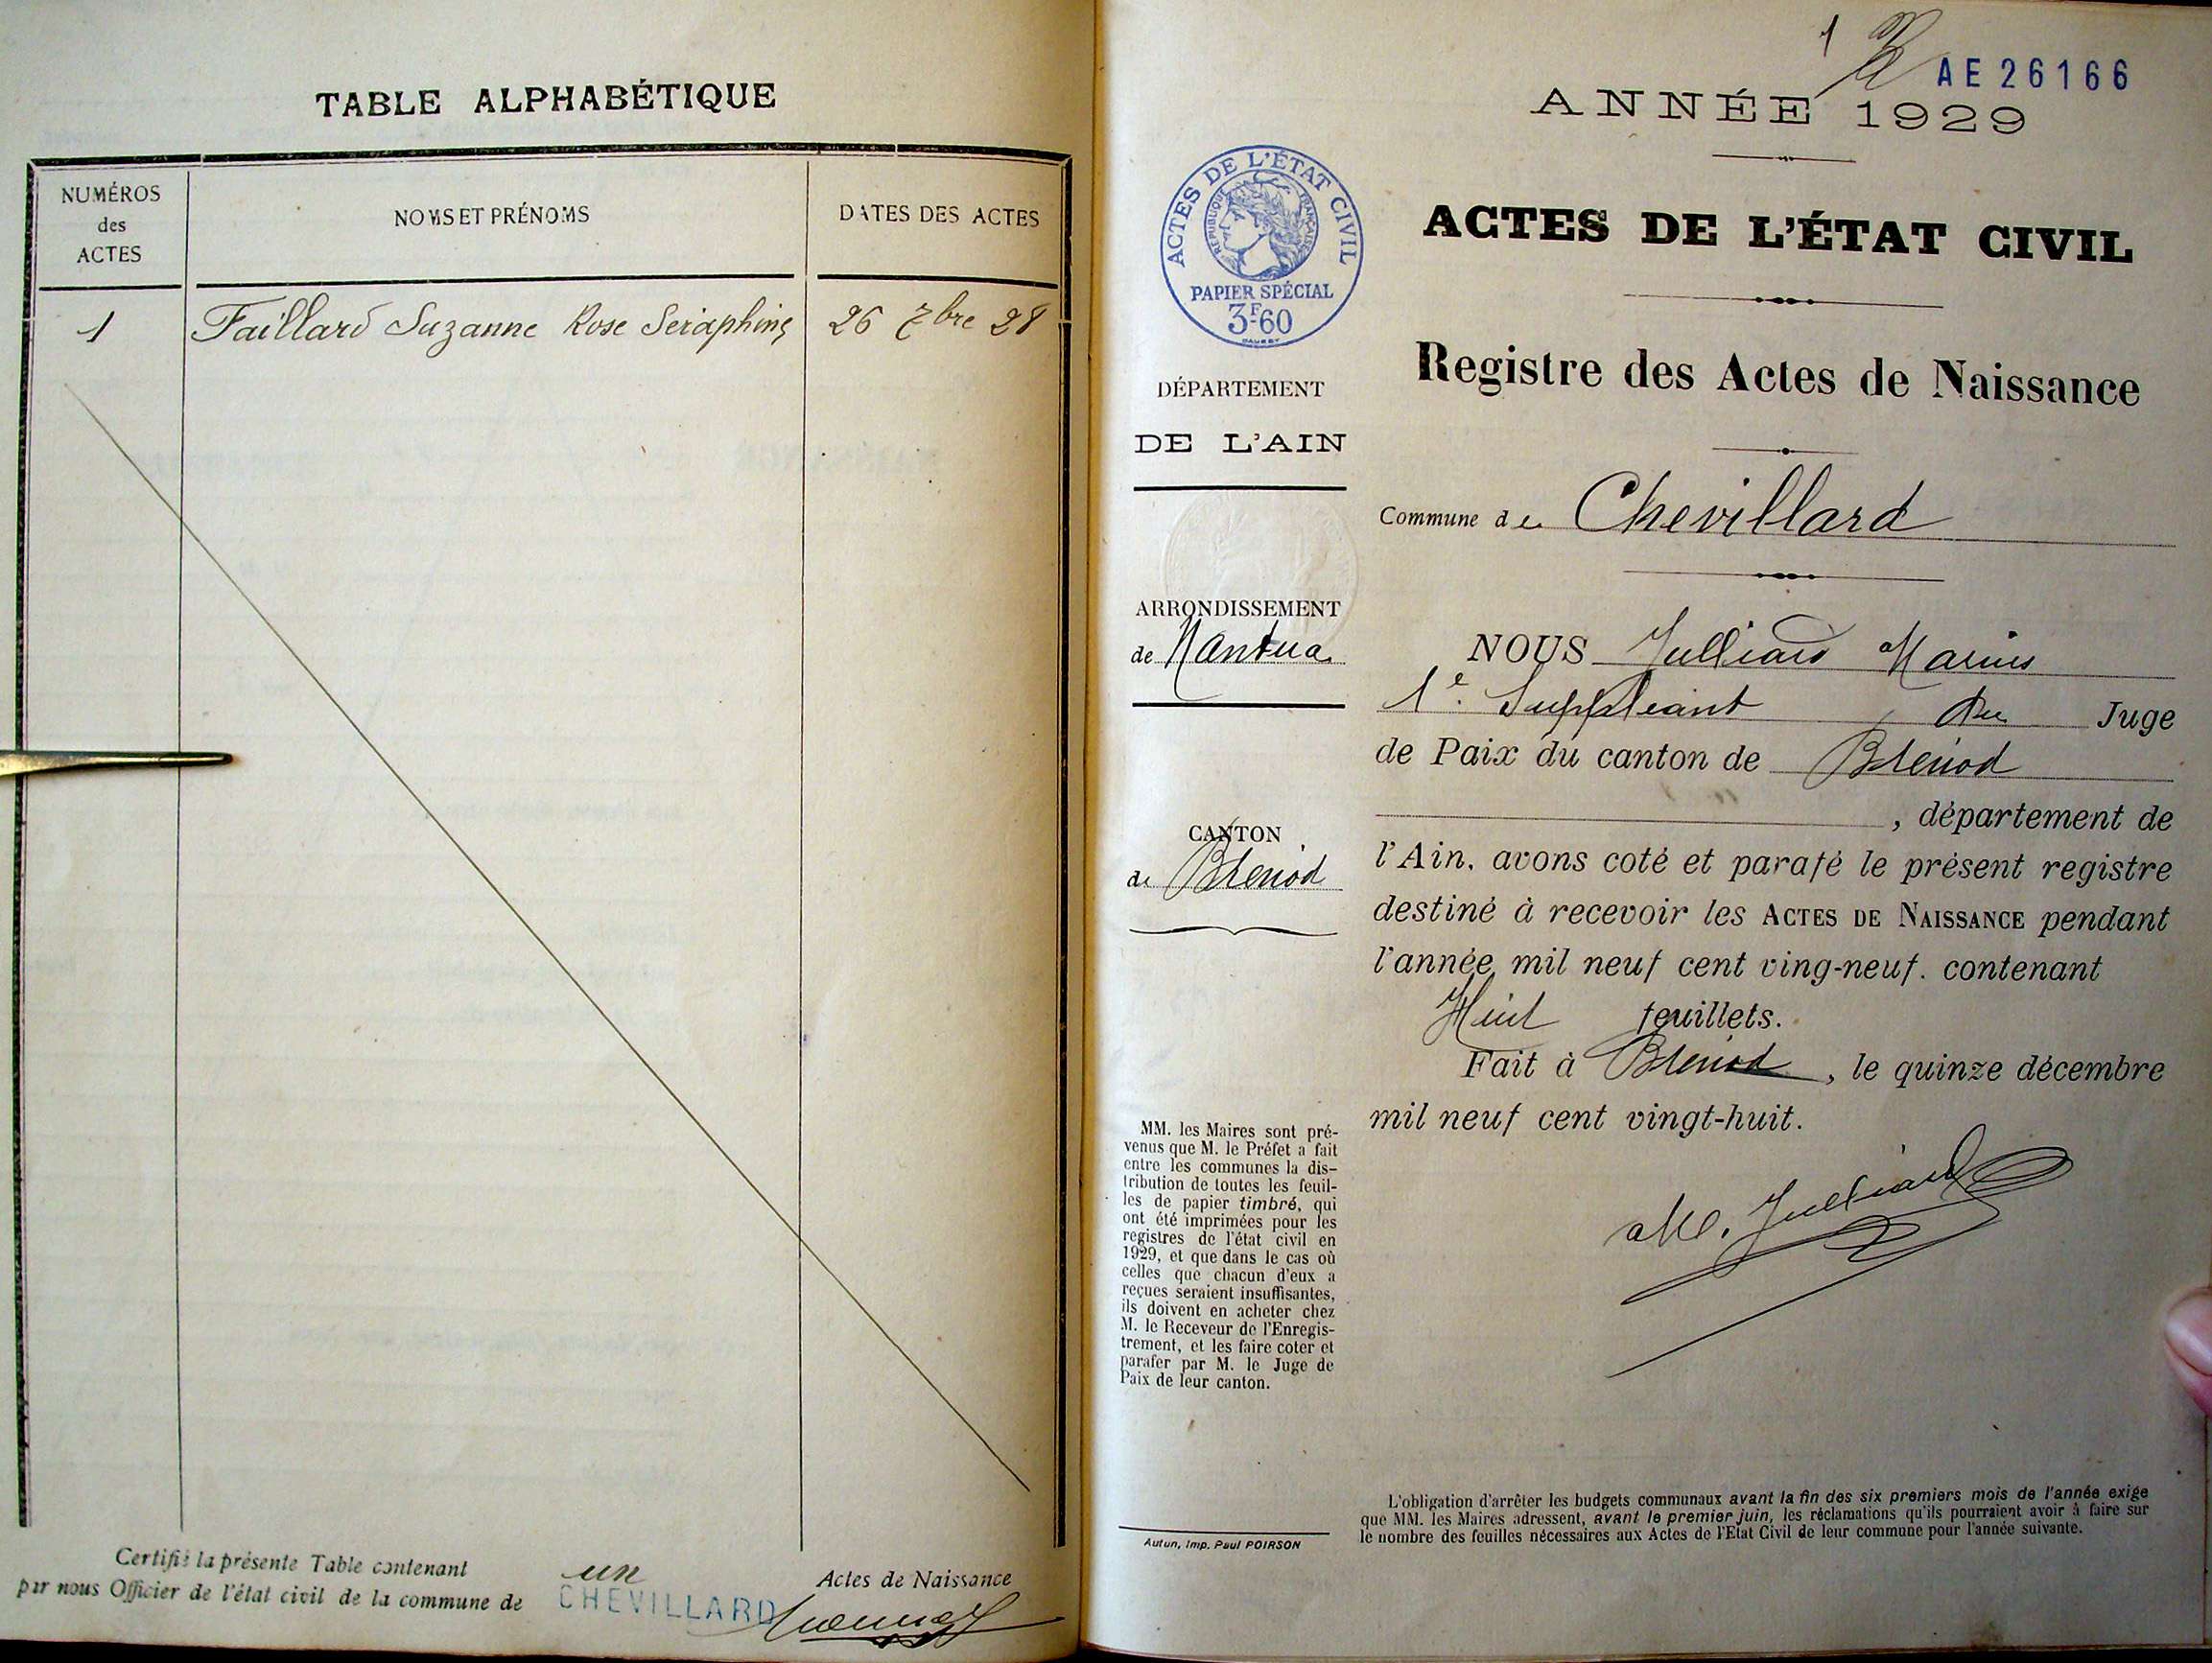 TABLE ALPHABÉTIQUE
NUMÉROS
des
ACTES
NOMS ET PRÉNOMS
DATES DES ACTES
1
Faillard Suzanne Rose Seraphine
26 7bre 28
Certifié la présente Table contenant un Actes de Naissance
par nous Officier de l'état civil de la commune de CHEVILLARD
1
AE 26166
ANNÉE 1929
ACTES DE L'ÉTAT CIVIL
RÉPUBLIQUE FRANÇAISE
PAPIER SPÉCIAL
3F60
DÉPARTEMENT
DE L'AIN
ARRONDISSEMENT
de Nantua
CANTON
de Brénod
MM. les Maires sont pré-
venus que M. le Préfet a fait
entre les communes la dis-
tribution de toutes les feuil-
les de papier timbré, qui
ont été imprimées pour les
registres de l'état civil en
1929, et que dans le cas où
celles que chacun d'eux a
reçues seraient insuffisantes,
ils doivent en acheter chez
M. le Receveur de l'Enregis-
trement, et les faire coter et
parafer par M. le Juge de
Paix de leur canton.
Autun, Imp. Paul POIRSON
ACTES DE L'ÉTAT CIVIL
Registre des Actes de Naissance
Commune de Chevillard
NOUS Julliard Marius
1e. Suppléant du Juge
de Paix du canton de Brénod
, département de
l'Ain, avons coté et parafé le présent registre
destiné à recevoir les ACTES DE NAISSANCE pendant
l'année mil neuf cent ving-neuf. contenant
Huit feuillets.
Fait à Brénod, le quinze décembre
mil neuf cent vingt-huit.
M. Julliard
L'obligation d'arrêter les budgets communaux avant la fin des six premiers mois de l'année exige
que MM. les Maires adressent, avant le premier juin, les réclamations qu'ils pourraient avoir à faire sur
le nombre des feuilles nécessaires aux Actes de l'Etat Civil de leur commune pour l'année suivante.